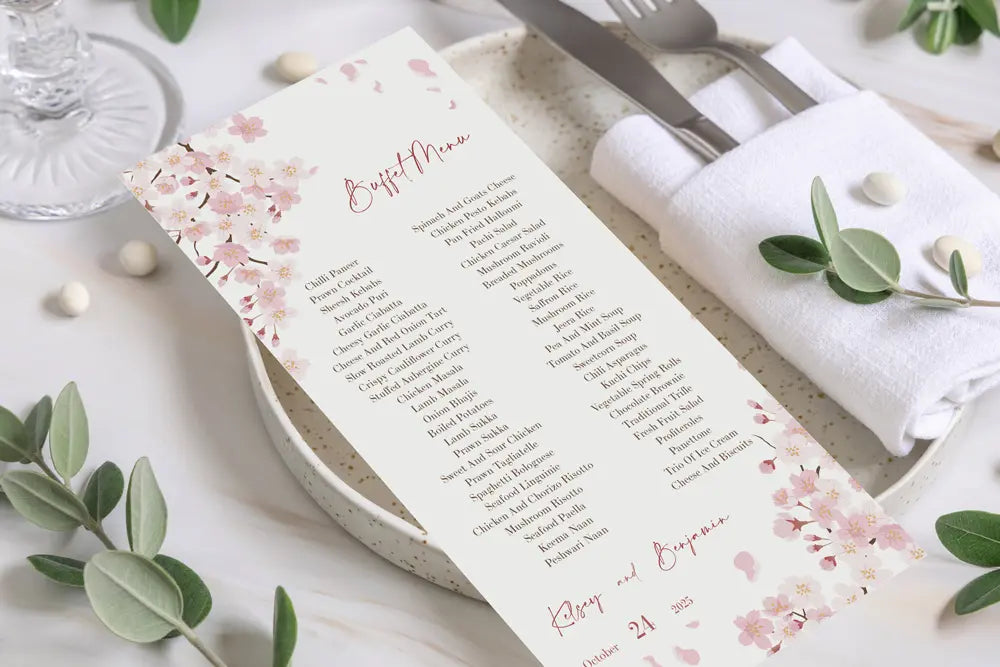 Buffet Menu
Chilli Paneer
Prawn Cocktail
Sheesh Kebabs
Avocado Pari
Garlic Ciabata
Cheesy Garlic Ciabata
Cheese And Red Onion Tart
Slow Roasted Lamb Curry
Crispy Cauliflower Curry
Stuffed Aubergine Curry
Chicken Masala
Lamb Masala
Onion Bhajis
Boiled Potatoes
Lamb Sukka
Prawn Sukka
Sweet And Sour Chicken
Prawn Tagliatelle
Spaghetti Bolognese
Seafood Linguinie
Chicken And Chorizo Risotto
Mushroom Risotto
Seafood Paella
Keema Naan
Peshwari Naan
Spinach And Goats Cheese
Chicken Pesto Kebabs
Pan Fried Halloumi
Pachi Salad
Chicken Caesar Salad
Mushroom Ravioli
Breaded Mushrooms
Poppadoms
Vegetable Rice
Saffron Rice
Mushroom Rice
Jeera Rice
Pea And Mint Soup
Tomato And Basil Soup
Sweetcorn Soup
Chili Asparagus
Kuchi Chips
Vegetable Spring Rolls
Chocolate Brownie
Traditional Trille
Fresh Fruit Salad
Profiteroles
Panettone
Trio Of Ice Cream
Cheese And Biscuits
Kelsey and Benjamin
October 24 2025